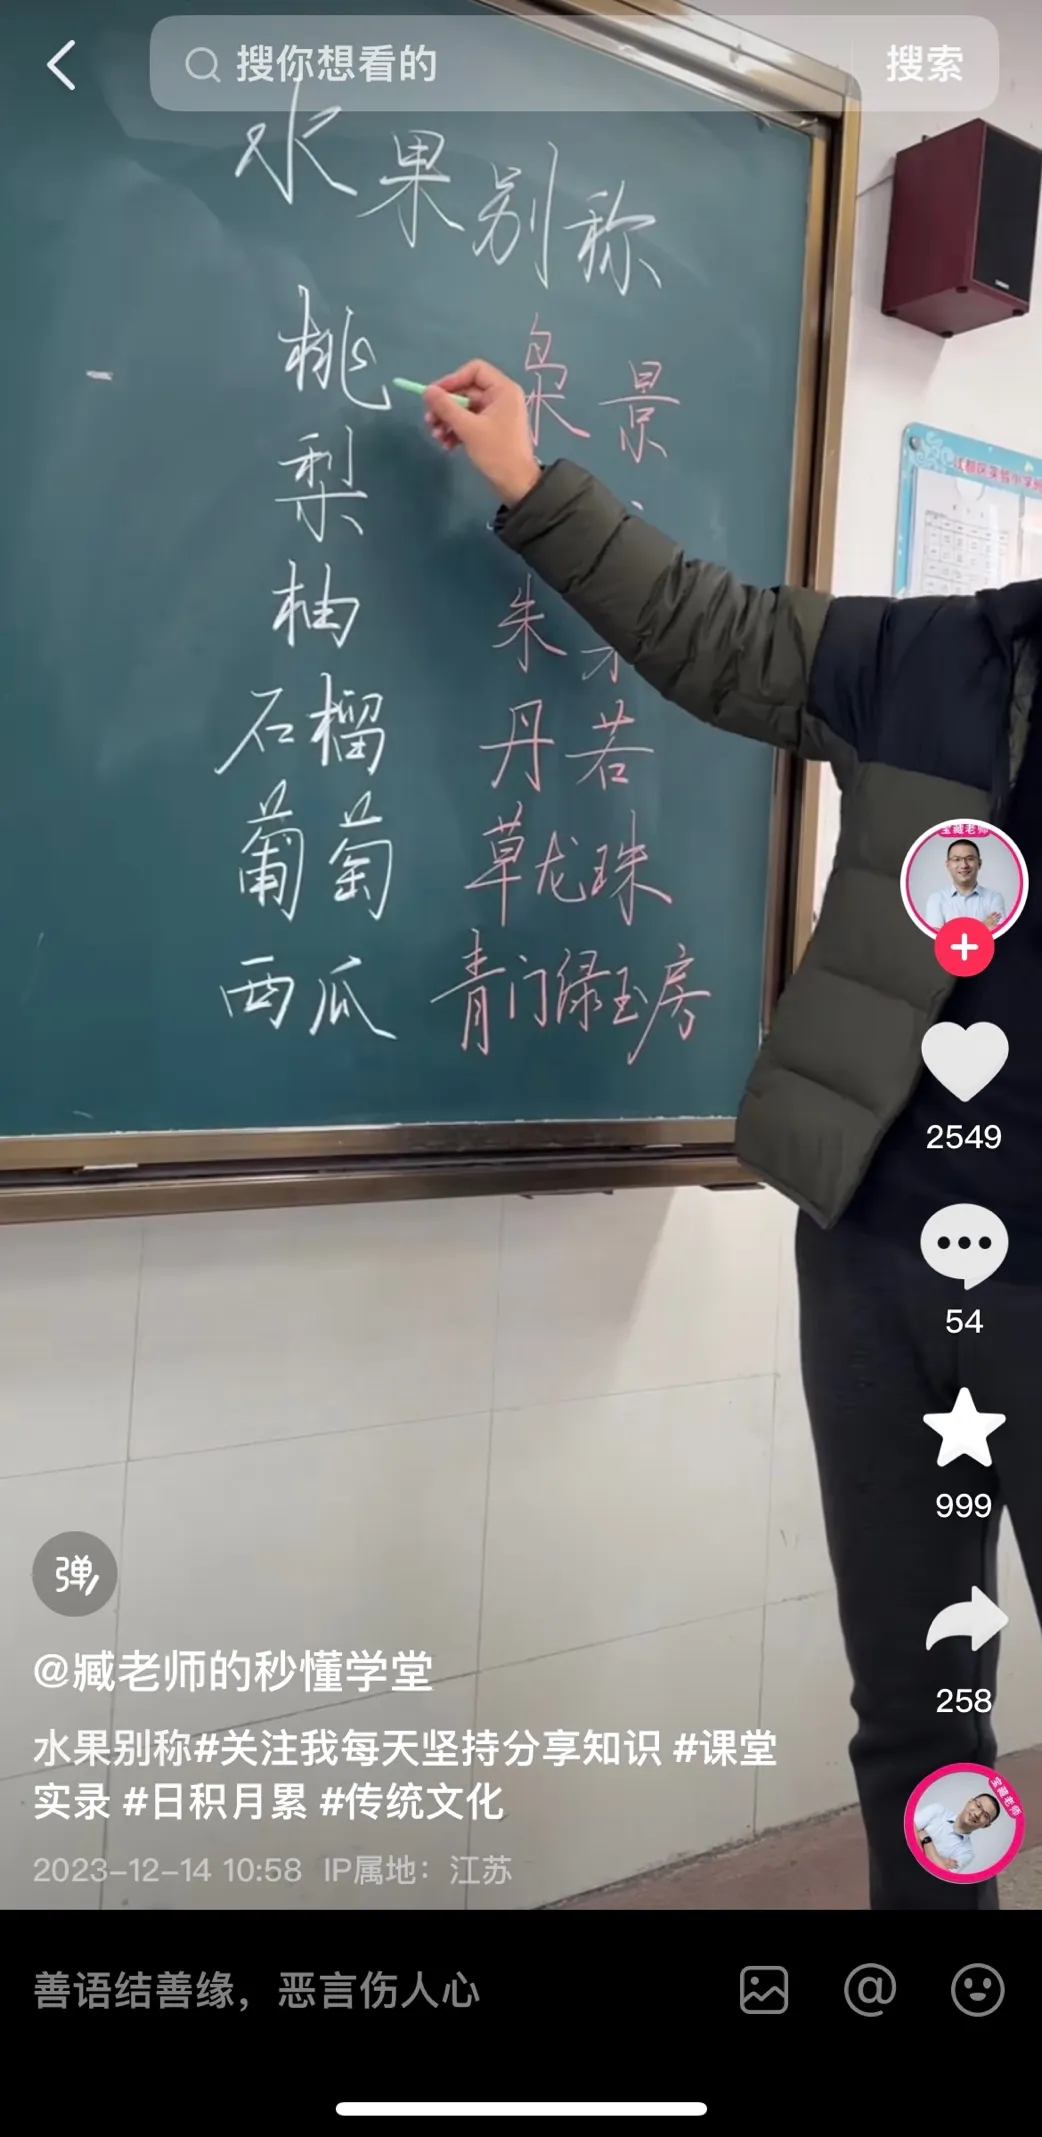 搜你想看的 搜索
水果别称
桃 枭景
梨
柚 朱
石榴 丹若
葡萄 草龙珠
西瓜 青门绿玉房
江都区实验小学
宝藏老师
2549
54
999
弹
258
@臧老师的秒懂学堂
水果别称#关注我每天坚持分享知识 #课堂
实录 #日积月累 #传统文化
宝藏老师
2023-12-14 10:58 IP属地：江苏
善语结善缘，恶言伤人心